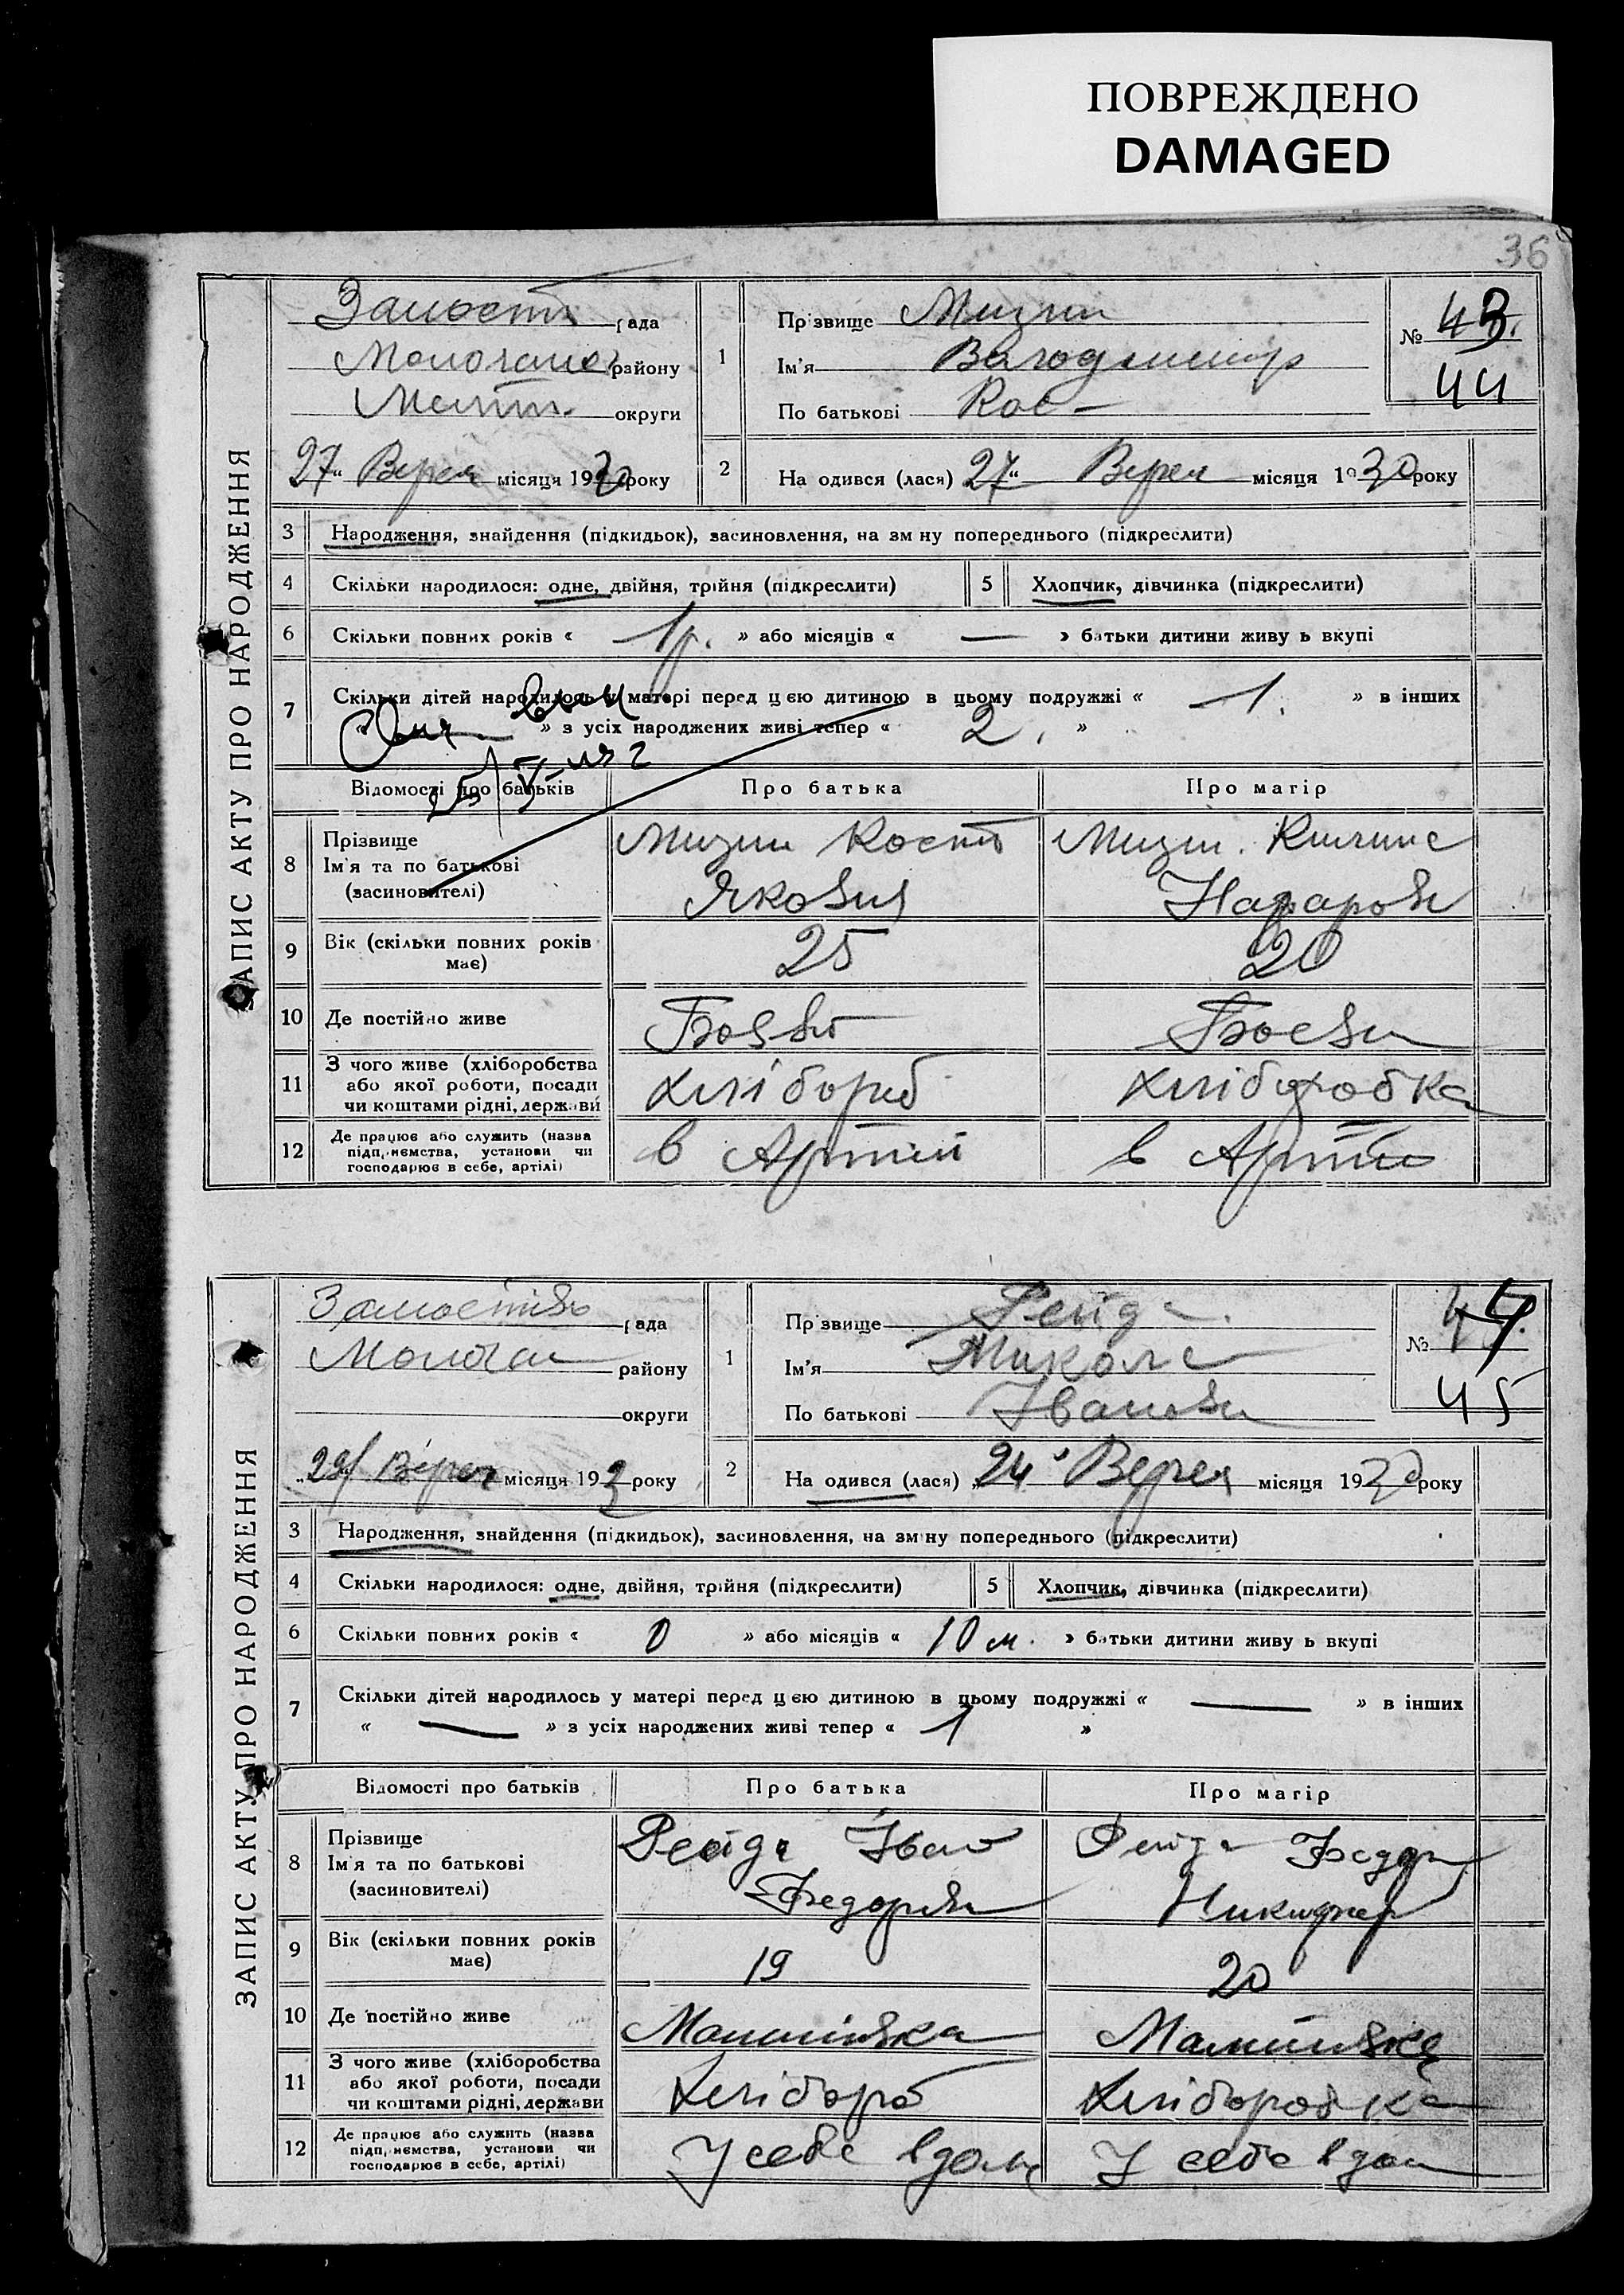 ПОВРЕЖДЕНО
DAMAGED
36
ЗАПИС АКТУ ПРО НАРОДЖЕННЯ
рада
району
округи
27 Верес місяця 1930 року
1
Прізвище Мизин
Ім'я Володимир
По батькові Кос-
№ 43.
44
2
На одився (лася) 27 Верес місяця 1930 року
3 Народження, знайдення (підкидьок), засиновлення, на зм ну попереднього (підкреслити)
4 Скільки народилося: одне, двійня, трійня (підкреслити)
5 Хлопчик, дівчинка (підкреслити)
6 Скільки повних років « 1 р. » або місяців « — » батьки дитини живу ь вкупі
7 Скільки дітей народилось у матері перед ц ею дитиною в цьому подружжі « 1. » в інших
» з усіх народжених живі тепер « 2. »
Відомості про батьків
Про батька
Про матір
8 Прізвище
Ім'я та по батькові
(засиновителі)
Мизин Кост
Якович
Мизин
9 Вік (скільки повних років
має)
25
20
10 Де постійно живе
11 З чого живе (хліборобства
або якої роботи, посади
чи коштами рідні, держави
хлібороб
хліборобка
12 Де працює або служить (назва
підп, иємства, установи чи
господарює в себе, артілі)
в Артілі
в Артіл
ЗАПИС АКТУ ПРО НАРОДЖЕННЯ
рада
Молочан району
округи
Верес місяця 193 року
1
Пр звище Рейда
Ім'я Микола
По батькові Іванов
№ 44.
45
2
На одився (лася) 24 Верес місяця 1930 року
3 Народження, знайдення (підкидьок), засиновлення, на зм ну попереднього (підкреслити)
4 Скільки народилося: одне, двійня, трійня (підкреслити)
5 Хлопчик, дівчинка (підкреслити)
6 Скільки повних років « 0 » або місяців « 10 м. » батьки дитини живу ь вкупі
7 Скільки дітей народилось у матері перед ц ею дитиною в цьому подружжі « — » в інших
« — » з усіх народжених живі тепер « 1 »
Відомості про батьків
Про батька
Про матір
8 Прізвище
Ім'я та по батькові
(засиновителі)
Рейда Іван
Федоров
Рейда
9 Вік (скільки повних років
має)
19
20
10 Де постійно живе
11 З чого живе (хліборобства
або якої роботи, посади
чи коштами рідні, держави
Хлібороб
Хліборобка
12 Де працює або служить (назва
підп, иємства, установи чи
господарює в себе, артілі)
У себе вдома
У себе вдом